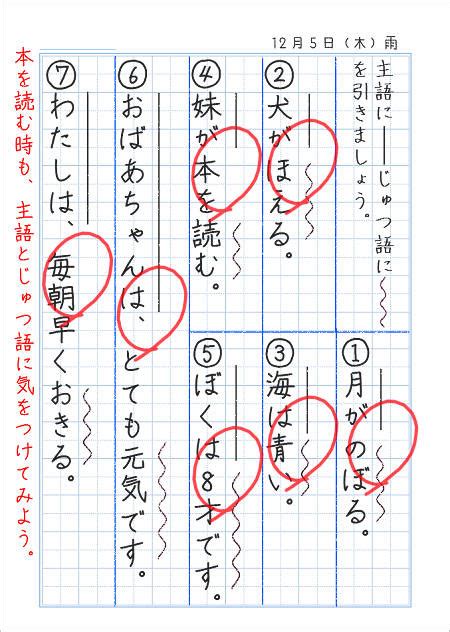 12月5日（木）雨
主語に━━じゅつ語に〰〰
を引きましょう。
①月がのぼる。
②犬がほえる。
③海は青い。
④妹が本を読む。
⑤ぼくは8才です。
⑥おばあちゃんは、とても元気です。
⑦わたしは、毎朝早くおきる。
本を読む時も、主語とじゅつ語に気をつけてみよう。